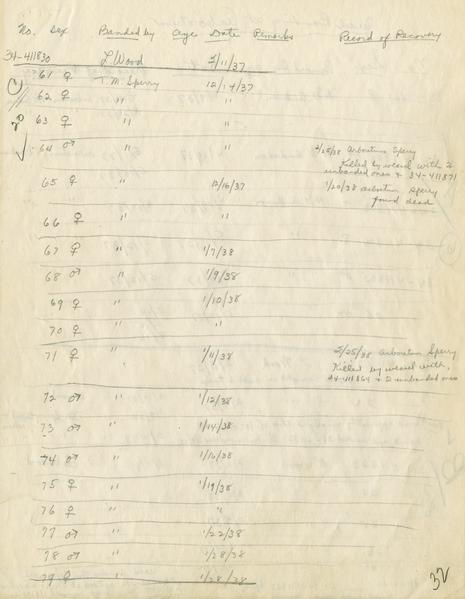 No. Sex Banded by Age Date Remarks Record of Recovery
34-411830 L Wood 3/11/37
61 ♀ T.M. Sperry 12/14/37
62 ♀ " "
63 ♀ " "
64 ♂ " " 2/25/38 Arboretum Sperry
Killed by weasel with 2
unbanded ones & 34-411871
65 ♀ " 12/16/37 1/20/38 Arboretum Sperry
found dead
66 ♀ " "
67 ♀ " 1/7/38
68 ♂ " 1/9/38
69 ♀ " 1/10/38
70 ♀ " "
71 ♀ " 1/11/38 2/25/38 Arboretum Sperry
Killed by weasel with
34-411864 & 2 unbanded ones
72 ♂ " 1/12/38
73 ♂ " 1/14/38
74 ♂ " 1/16/38
75 ♀ " 1/19/38
76 ♀ " "
77 ♂ " 1/22/38
78 ♂ " 1/28/38
79 ♀ " 1/28/38
32